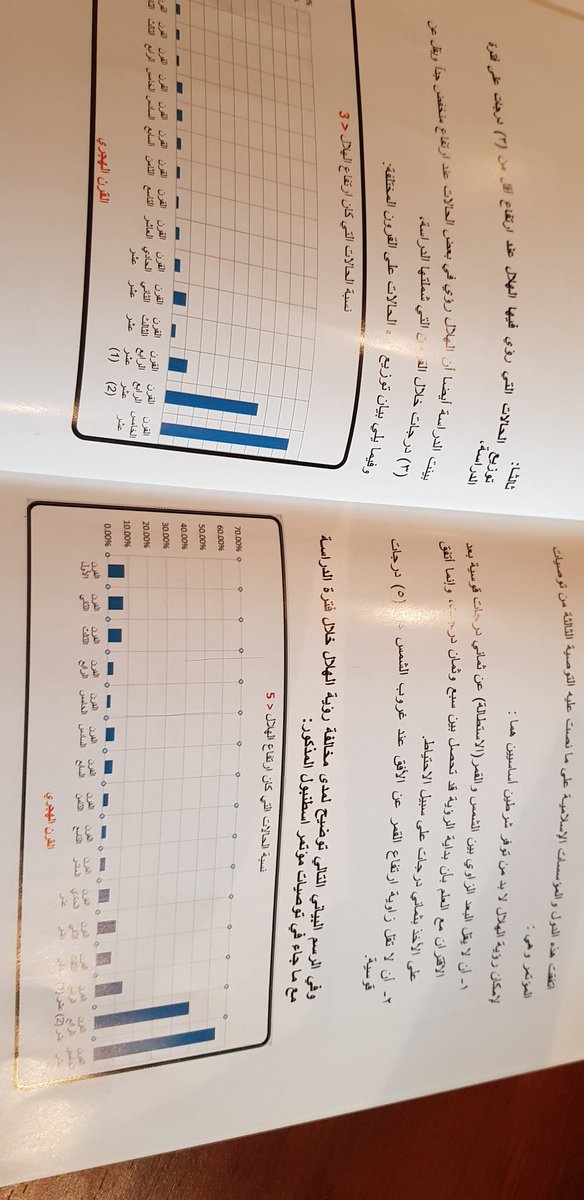 ثالثا: الحالات التي رؤي فيها الهلال عند ارتفاع أقل من (٣) درجات على فترة
توزيع
الدراسة.
بينت الدراسة أيضا أن الهلال رؤي في بعض الحالات عند ارتفاع منخفض جدا ويقل عن
(٣) درجات خلال القرون التي شملتها الدراسة.
وفيما يلي بيان توزيع الحالات على القرون المختلفة:
نسبة الحالات التي كان ارتفاع الهلال < 3
القرن الثالث
القرن الرابع
القرن الخامس
القرن السادس
القرن السابع
القرن الثامن
القرن التاسع
القرن العاشر
القرن الحادي عشر
القرن الثاني عشر
القرن الثالث عشر
القرن الرابع عشر (1)
القرن الرابع عشر (2)
القرن الخامس عشر
القرن الهجري
اتفقت هذه الدول والمؤسسات الإسلامية على ما نصت عليه التوصية الثالثة من توصيات
المؤتمر وهي:
لإمكان رؤية الهلال لا بد من توفر شرطين أساسيين هما:
١- أن لا يقل البعد الزاوي بين الشمس والقمر (الاستطالة) عن ثماني درجات قوسية بعد
الاقتران مع العلم بأن بداية الرؤية قد تحصل بين سبع وثمان درجات، وإنما اتفق
على الأخذ بثماني درجات على سبيل الاحتياط.
٢- أن لا تقل زاوية ارتفاع القمر عن الأفق عند غروب الشمس (٥) درجات
قوسية.
وفي الرسم البياني التالي توضيح لمدى مخالفة رؤية الهلال خلال فترة الدراسة
مع ما جاء في توصيات مؤتمر اسطنبول المذكور:
نسبة الحالات التي كان ارتفاع الهلال < 5
70.00%
60.00%
50.00%
40.00%
30.00%
20.00%
10.00%
0.00%
القرن الأول
القرن الثاني
القرن الثالث
القرن الرابع
القرن الخامس
القرن السادس
القرن السابع
القرن الثامن
القرن التاسع
القرن العاشر
القرن الحادي عشر
القرن الثاني عشر
القرن الثالث عشر
القرن الرابع عشر (1)
القرن الرابع عشر (2)
القرن الخامس عشر
القرن الهجري